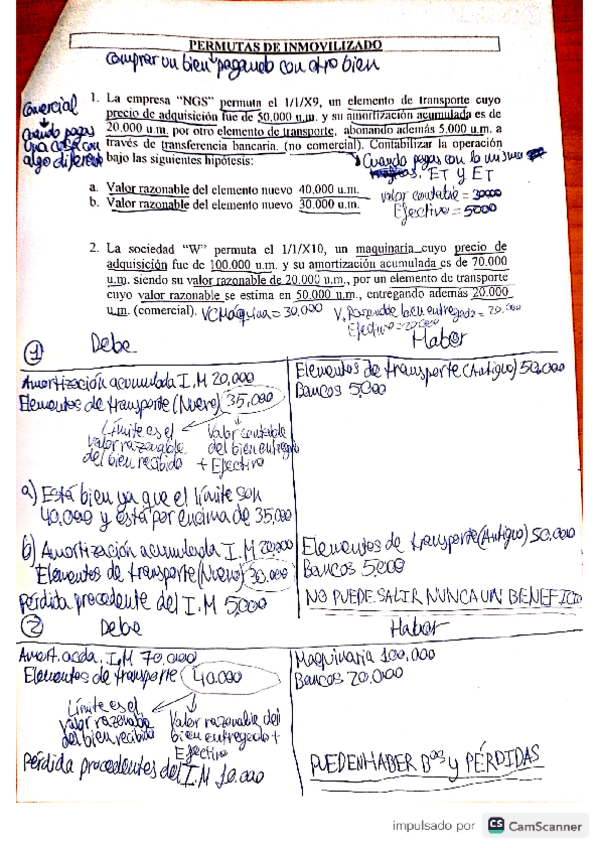 PERMUTAS DE INMOVILIZADO
comprar un bien pagando con otro bien
Comercial
Cuando pagas
una cosa con
algo diferente
1. La empresa "NGS" permuta el 1/1/X9, un elemento de transporte cuyo
precio de adquisición fue de 50.000 u.m. y su amortización acumulada es de
20.000 u.m. por otro elemento de transporte, abonando además 5.000 u.m. a
través de transferencia bancaria. (no comercial). Contabilizar la operación
bajo las siguientes hipótesis:
Cuando pagas con lo mismo
ET y ET
a. Valor razonable del elemento nuevo 40.000 u.m.
b. Valor razonable del elemento nuevo 30.000 u.m.
valor contable = 30000
Efectivo = 5000
2. La sociedad "W" permuta el 1/1/X10, un maquinaria cuyo precio de
adquisición fue de 100.000 u.m. y su amortización acumulada es de 70.000
u.m. siendo su valor razonable de 20.000 u.m., por un elemento de transporte
cuyo valor razonable se estima en 50.000 u.m., entregando además 20.000
u.m. (comercial). VCMaquina = 30,000 V. Razonable bien entregado = 20.000
Efectivo = 20000
1 Debe Haber
Amortización acumulada I.M 20,000
Elementos de transporte (Nuevo) 35,000
Límite es el
valor razonable
del bien recibido
Valor contable
del bien entregado
+ Efectivo
Elementos de transporte (Antiguo) 50,000
Bancos 5,000
a) Está bien ya que el límite son
40,000 y está por encima de 35,000
b) Amortización acumulada I.M 20,000
Elementos de transporte (Nuevo) 30.000
Pérdida procedente del I.M 5,000
Elementos de transporte (Antiguo) 50.000
Bancos 5,000
NO PUEDE SALIR NUNCA UN BENEFICIO
2 Debe Haber
Amort. acda. I.M 70.000
Elementos de transporte 40.000
Límite es el
valor razonable
del bien recibido
Valor razonable del
bien entregado +
Efectivo
Pérdida procedentes del I.M 10.000
Maquinaria 100,000
Bancos 20,000
PUEDEN HABER Bºs y PÉRDIDAS
impulsado por CS CamScanner